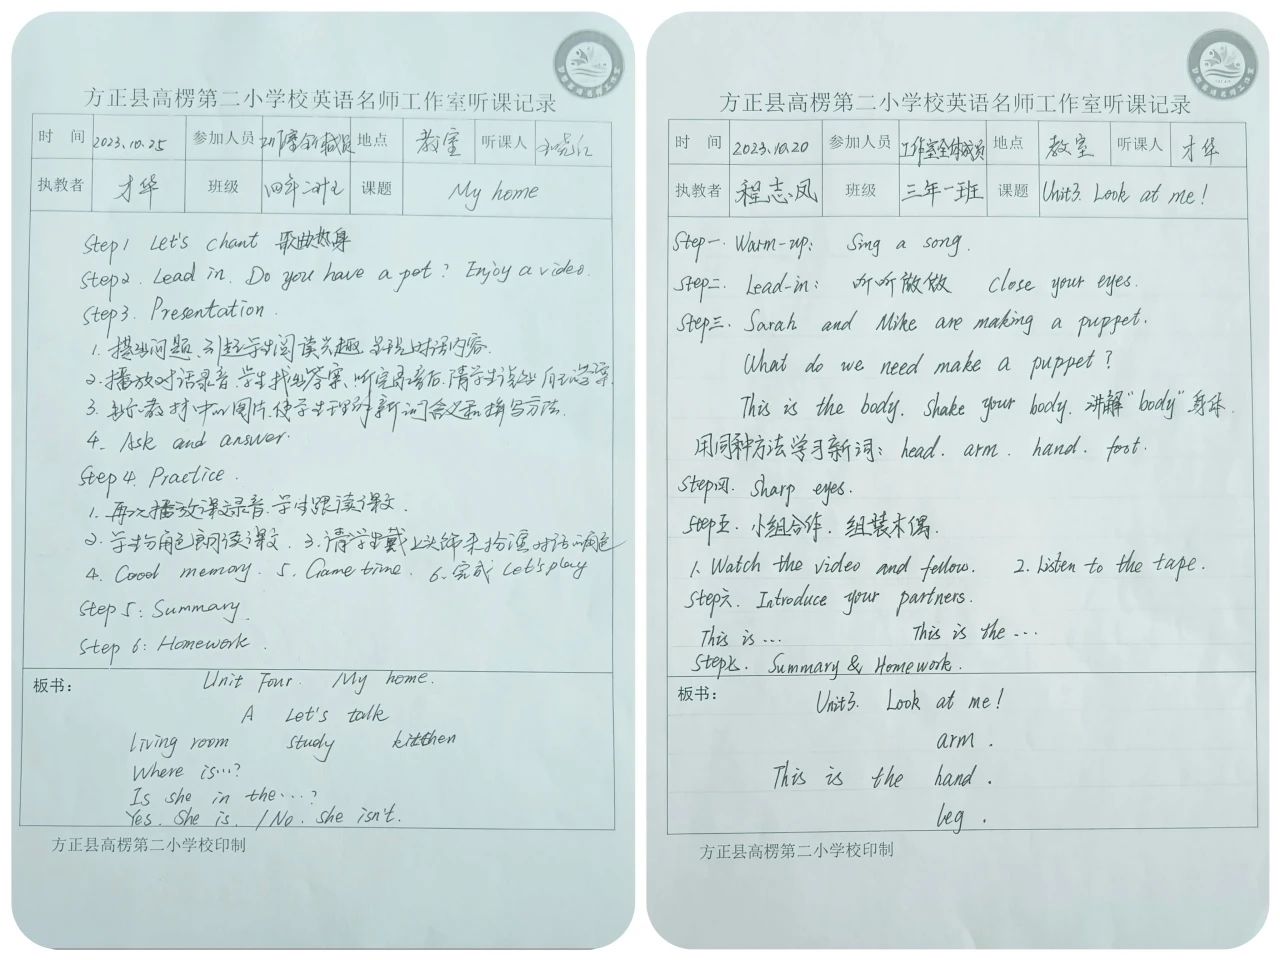 方正县高楞第二小学校英语名师工作室听课记录
时 间 2023.10.25 参加人员 地点 教室 听课人
执教者 才华 班级 课题 My home
Step1 Let's chant 歌曲热身
Step2. Lead in. Do you have a pet? Enjoy a video.
Step3. Presentation.
1. 提出问题、引起学生阅读兴趣.呈现对话内容.
2. 播放对话录音.学生找出答案、听完录音后.请学生说出自己答案.
3. 教材中的图片.使学生理解新词含义和拼写方法.
4. Ask and answer.
Step 4. Practice.
1. 再次播放课文录音.学生跟读课文.
2. 学生分角色朗读课文. 3. 请学生戴上头饰来扮演对话的角色
4. Good memory. 5. Game time. 6. 完成 Let's play
Step 5: Summary.
Step 6: Homework.
板书:
Unit Four. My home.
A Let's talk
living room study kitchen
Where is…?
Is she in the…?
Yes. She is. /No. she isn't.
方正县高楞第二小学校印制
方正县高楞第二小学校英语名师工作室听课记录
时 间 2023.10.20 参加人员 工作室全体成员 地点 教室 听课人 才华
执教者 程志凤 班级 三年一班 课题 Unit3. Look at me!
Step一. Warm-up: Sing a song.
Step二. Lead-in: 听听做做 Close your eyes.
Step三. Sarah and Mike are making a puppet.
What do we need make a puppet?
This is the body. Shake your body. 讲解"body"身体.
用同种方法学习新词: head. arm. hand. foot.
Step四. Sharp eyes.
Step五. 小组合作. 组装木偶.
1. Watch the video and fellow. 2. Listen to the tape.
Step六. Introduce your partners.
This is … This is the …
Step七. Summary & Homework.
板书:
Unit3. Look at me!
arm.
This is the hand.
leg.
方正县高楞第二小学校印制